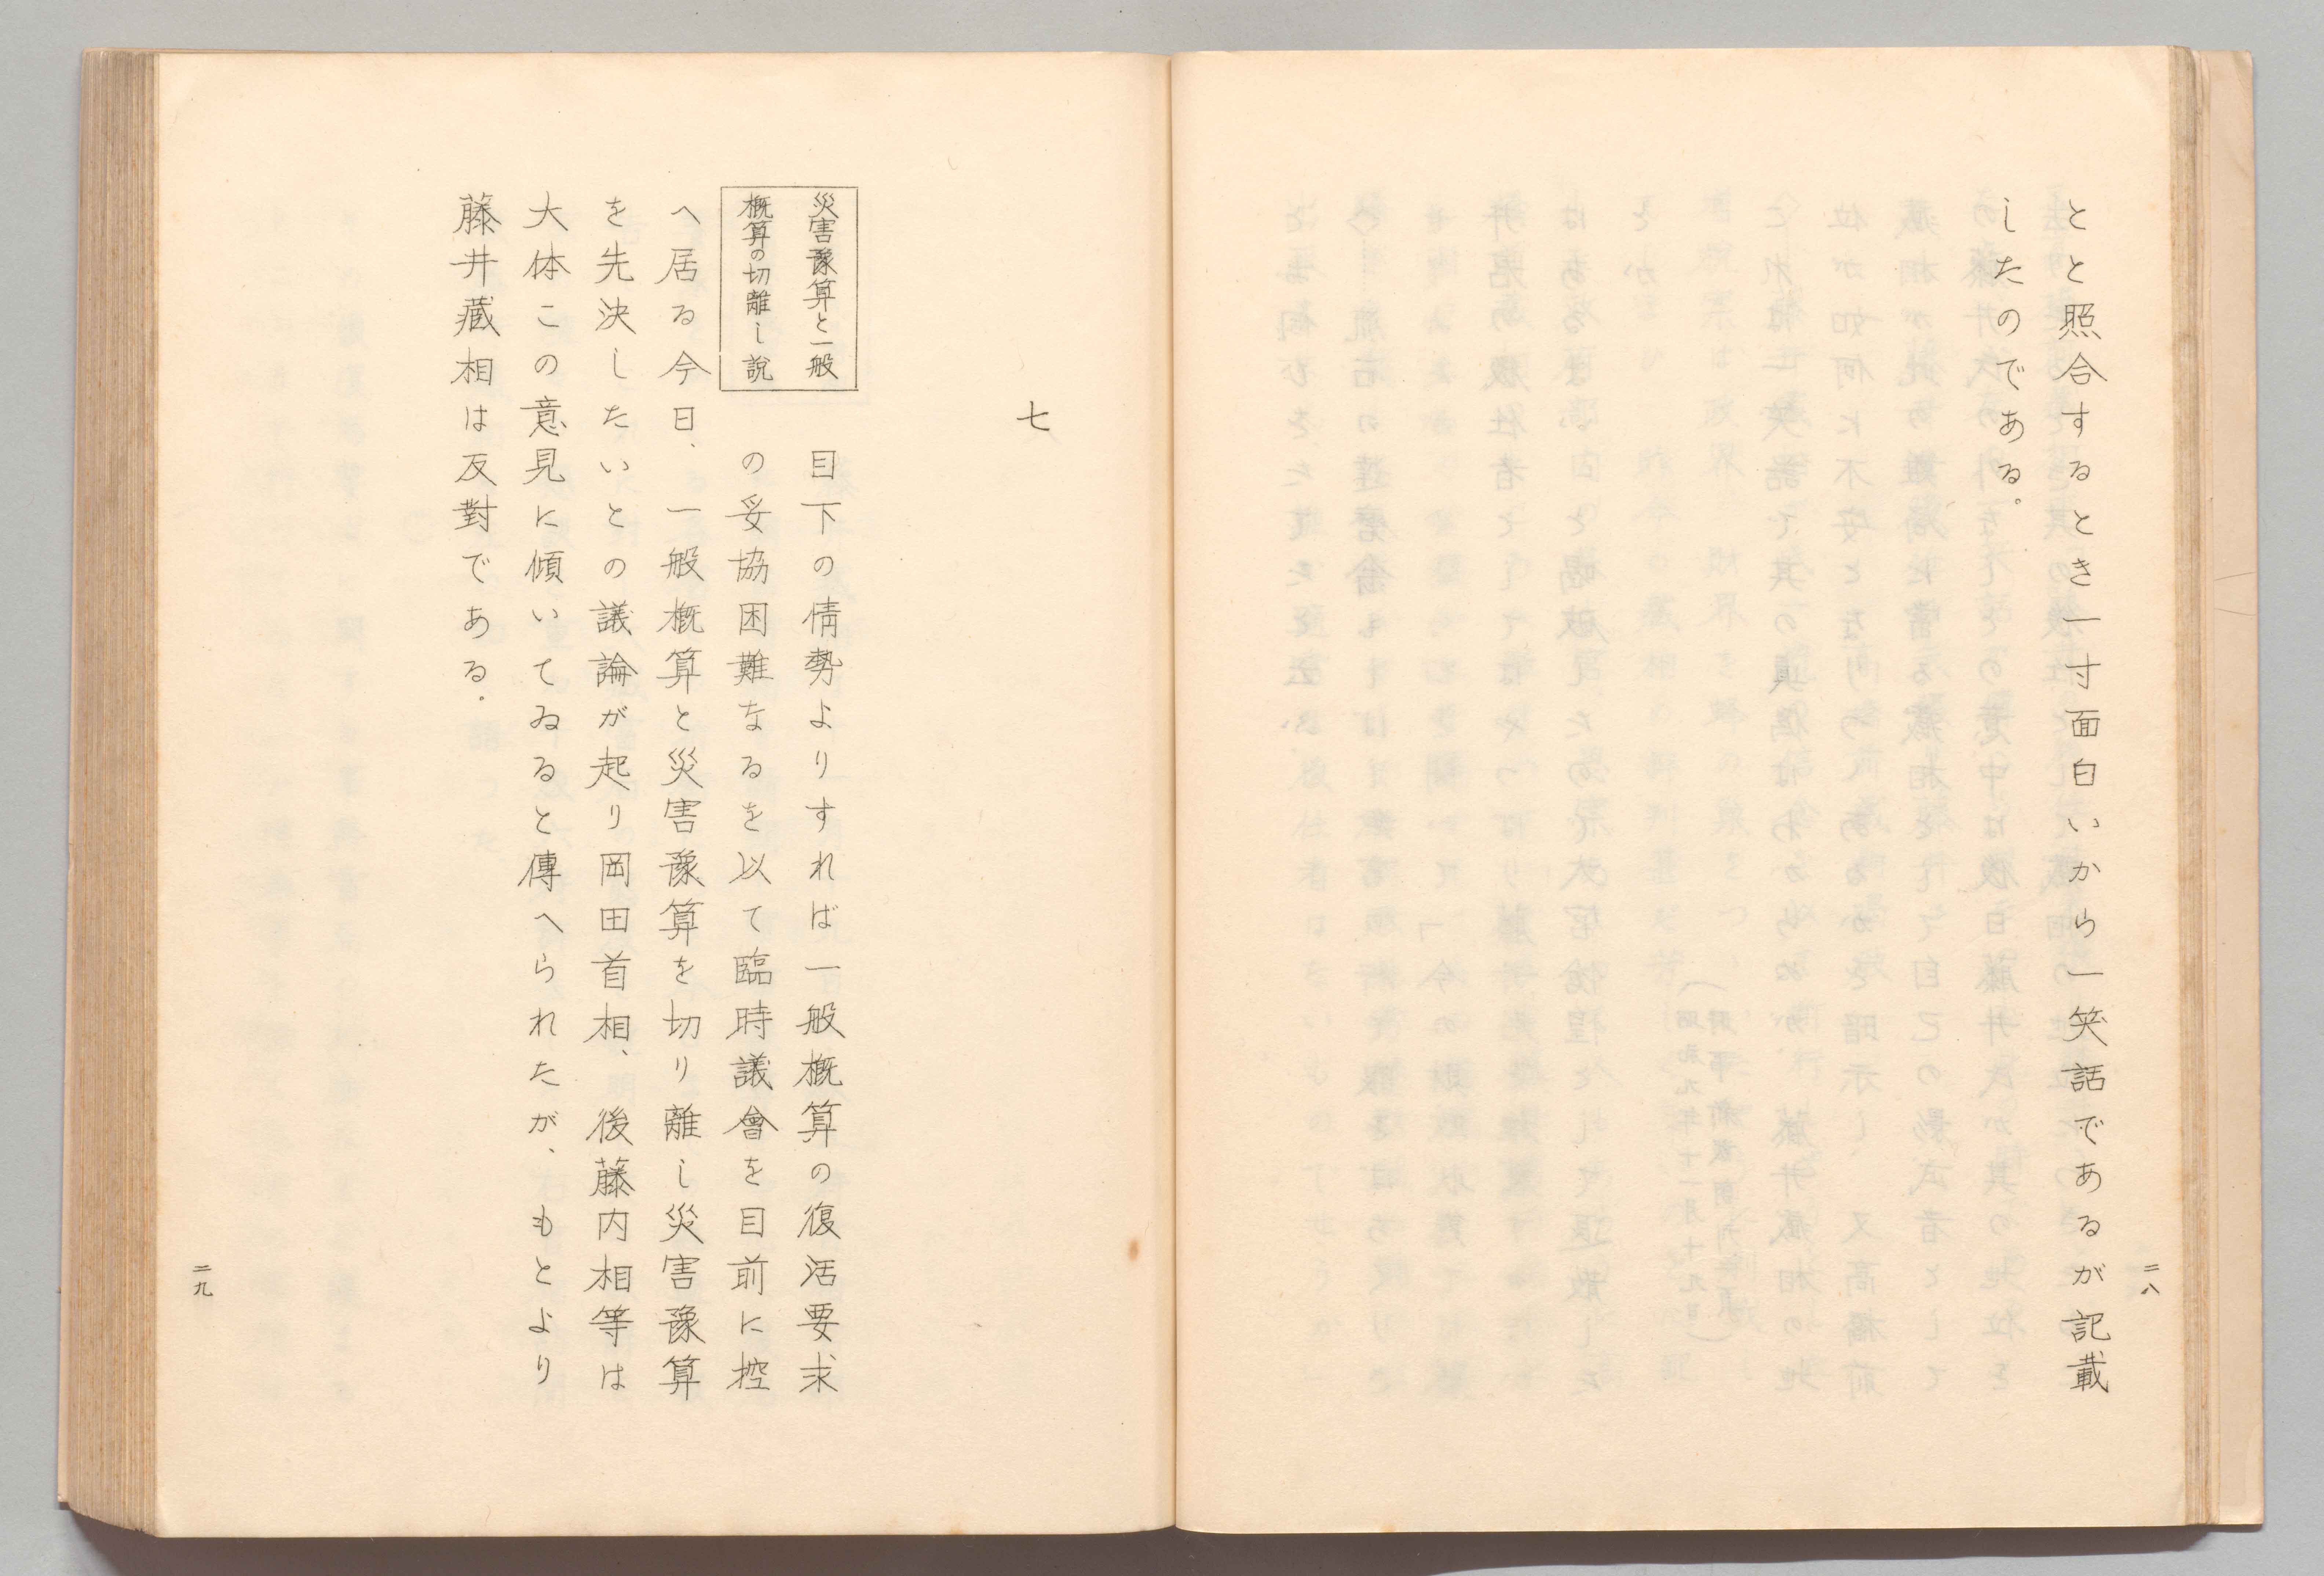 とと照合するとき一寸面白いから一笑話であるが記載
したのである。
二八
七
災害豫算と一般
概算の切離し説
目下の情勢よりすれば一般概算の復活要求
の妥協困難なるを以て臨時議會を目前に控
へ居る今日、一般概算と災害豫算を切り離し災害豫算
を先決したいとの議論が起り岡田首相、後藤内相等は
大体この意見に傾いてゐると傳へられたが、もとより
藤井藏相は反對である。
二九